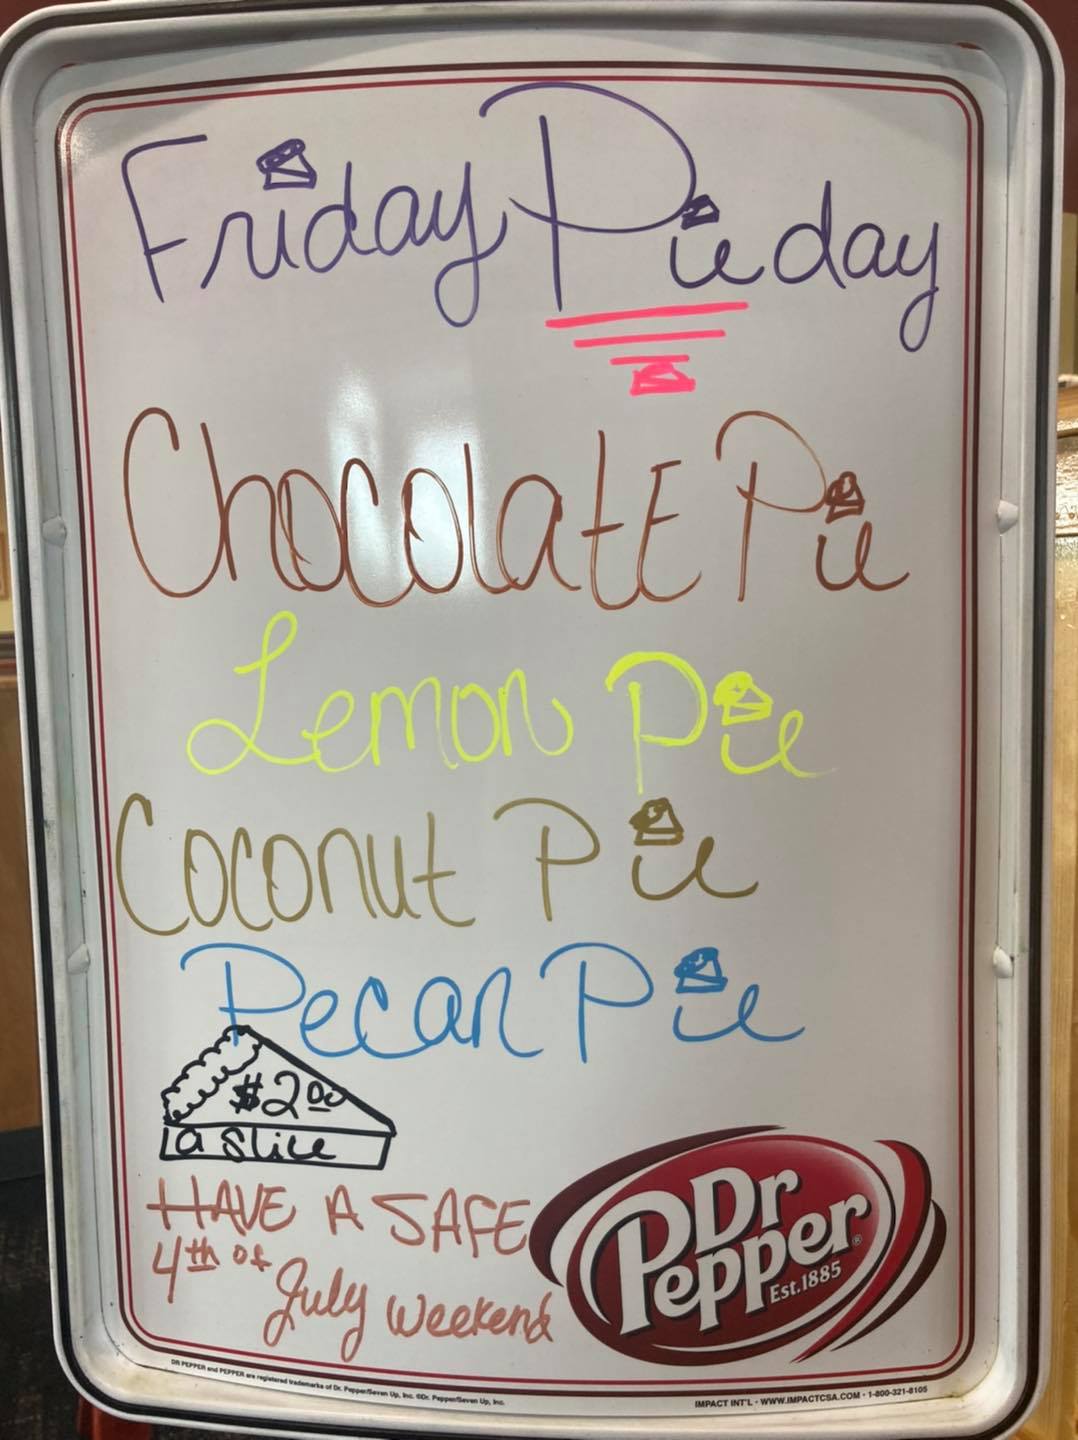 Friday Pie day
Chocolate Pie
Lemon Pie
Coconut Pie
Pecan Pie
$2.00
a slice
HAVE A SAFE
4th of
July weekend
Dr
Pepper®
Est.1885
DR PEPPER and PEPPER are registered trademarks of Dr. Pepper/Seven Up, Inc. ©Dr. Pepper/Seven Up, Inc.
IMPACT INT'L • WWW.IMPACTCSA.COM • 1-800-321-8105